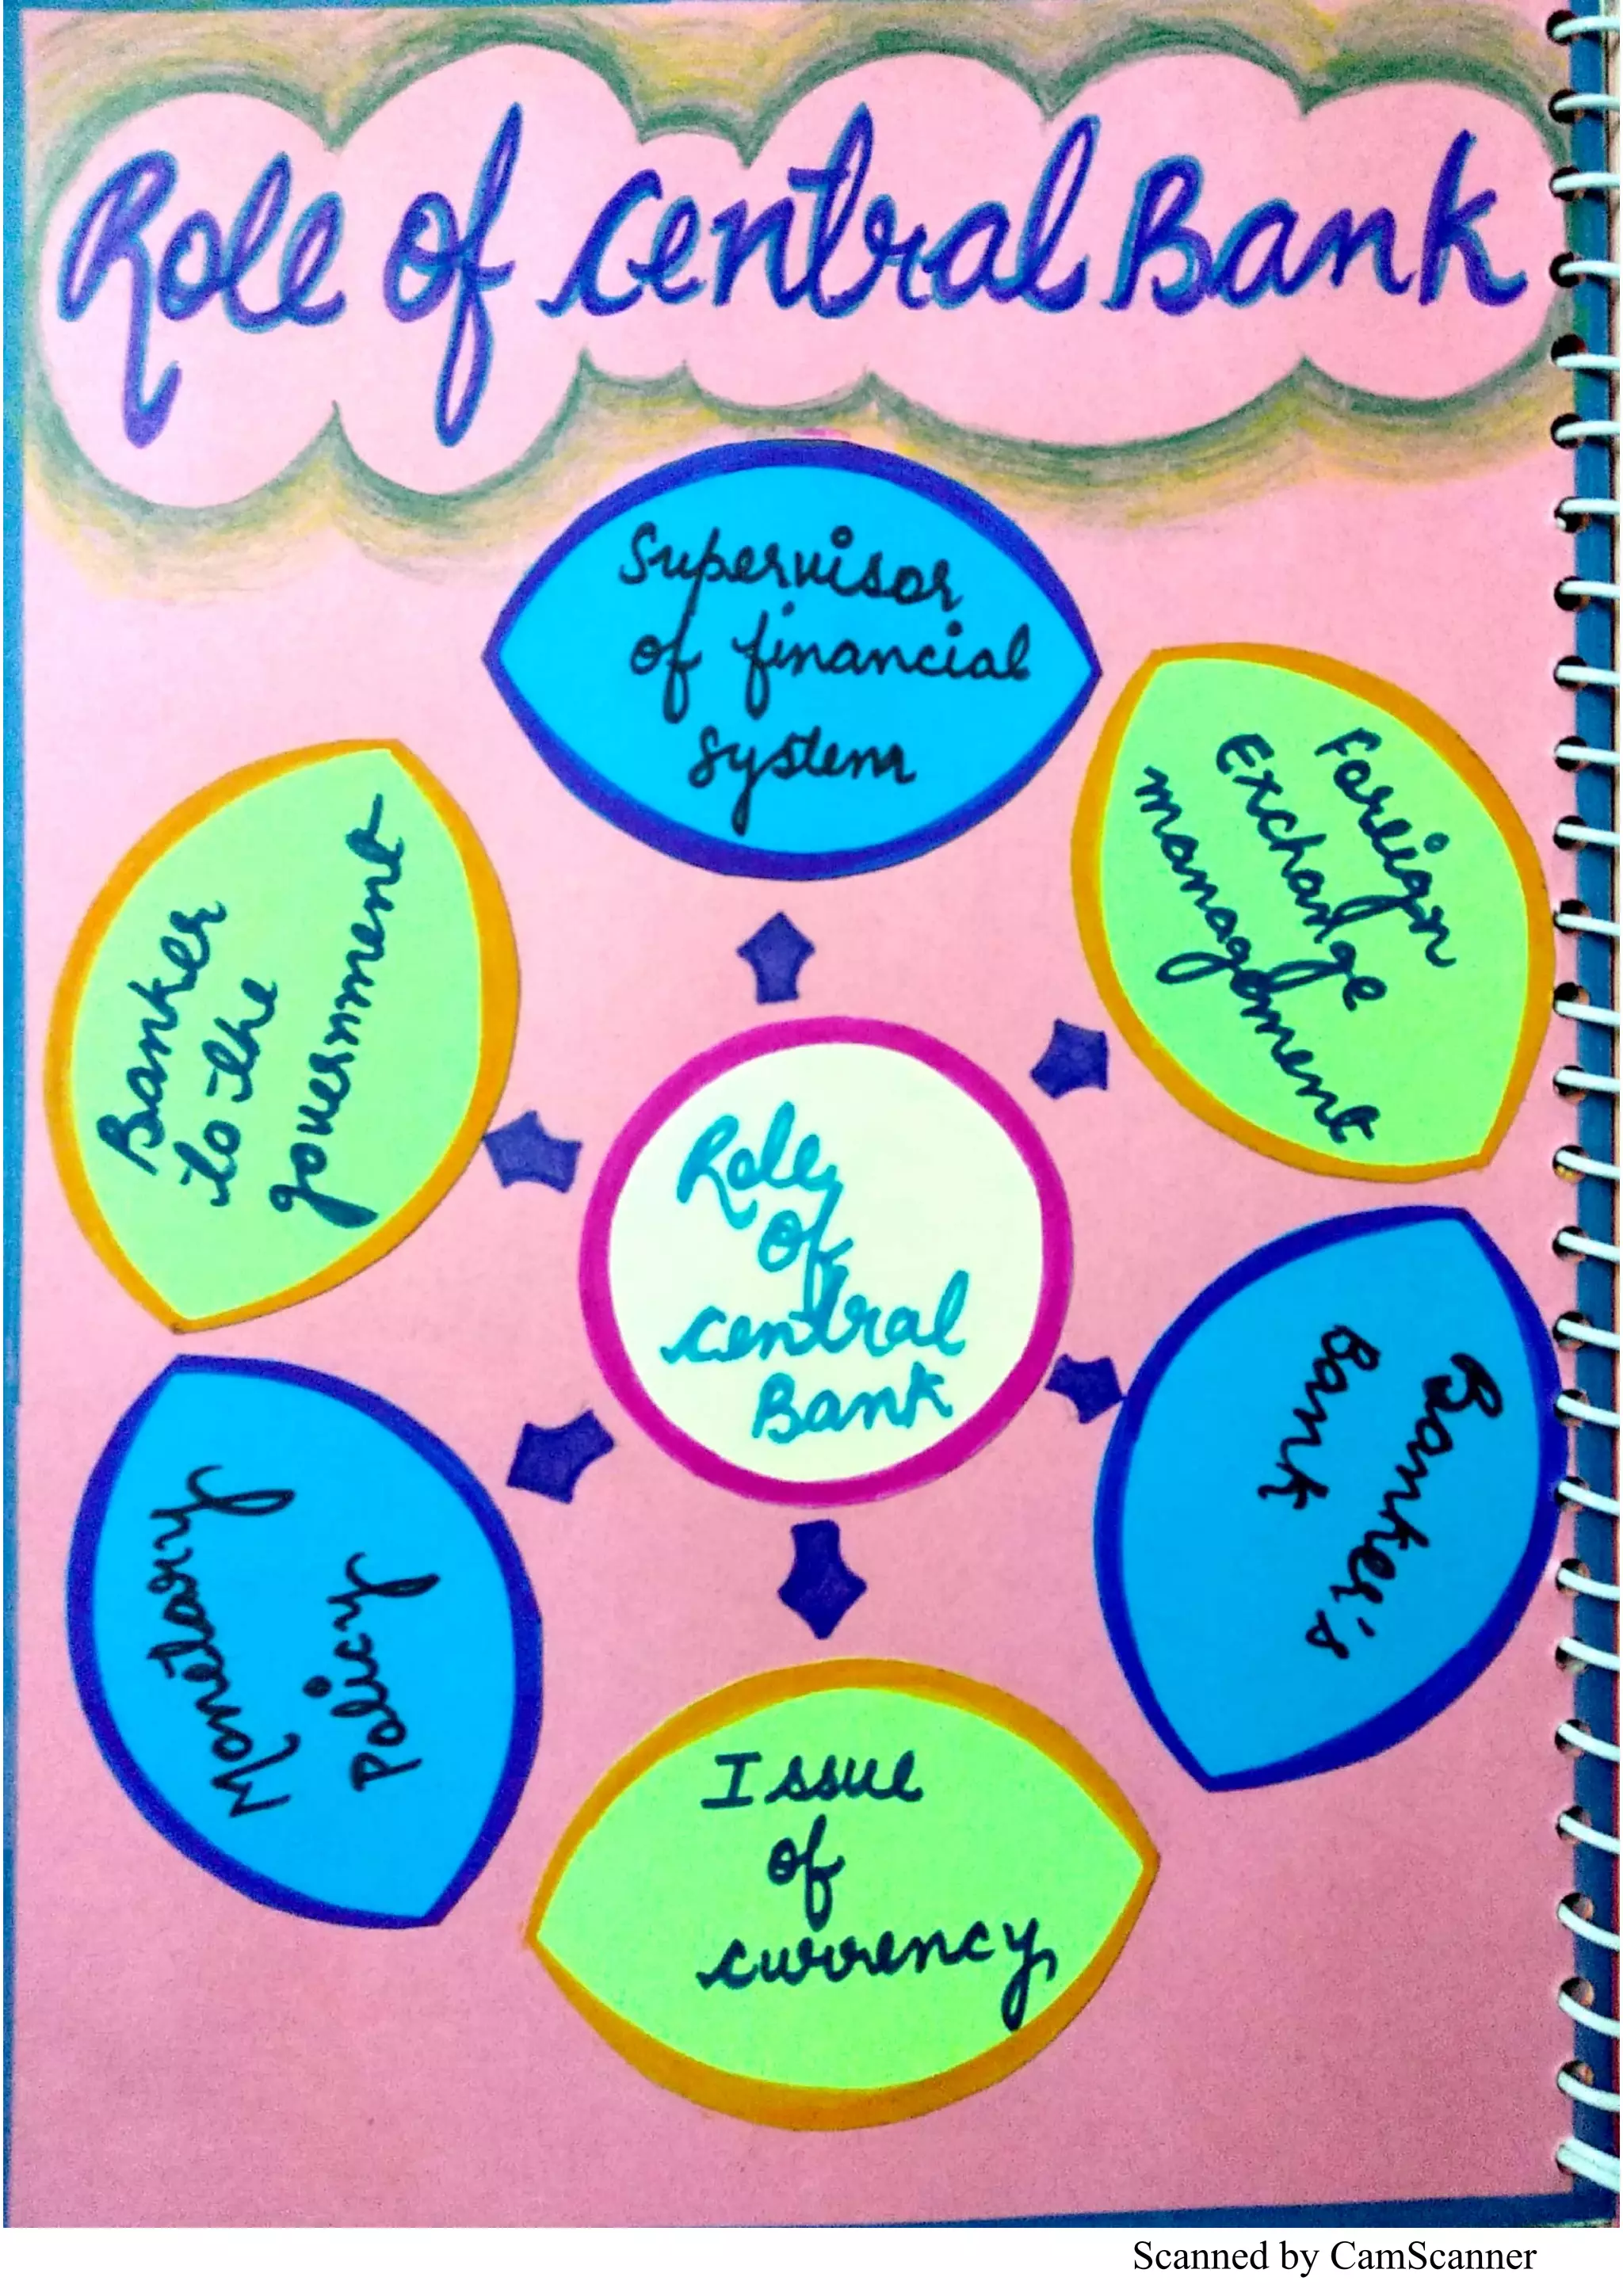 Role of central Bank
Supervisor
of financial
system
Foreign
Exchange
management
Banker's
Bank
Issue
of
currency
Monetary
policy
Banker
to the
government
Role
of
central
Bank
Scanned by CamScanner